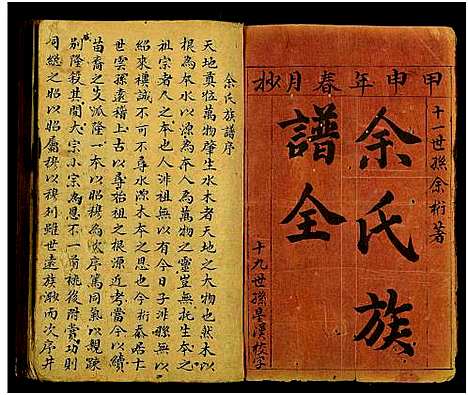 甲申年春月抄
十一世孫余桁著
余氏族
譜全
十九世孫吳漢校字
余氏族譜序
天地真位萬物肇生水木者天地之大物也然木以
根為本水以源為本人為萬物之靈豈無托生本之
祖宗者人之本乎人非祖無以有今日子非縣無以
紹來禩誠不可不尋水源木本之思也今桁忝居十
世雲孫遠稽上古以尋始祖之根源近考當今以續
苗裔之支派隆一本以昭穆為次序篤同氣以親疎
別隆殺其間大宗小宗為恩不一前祧後附賞功則
同繼之昭以昭屬穆以穆列雖世遠族渺而次序井